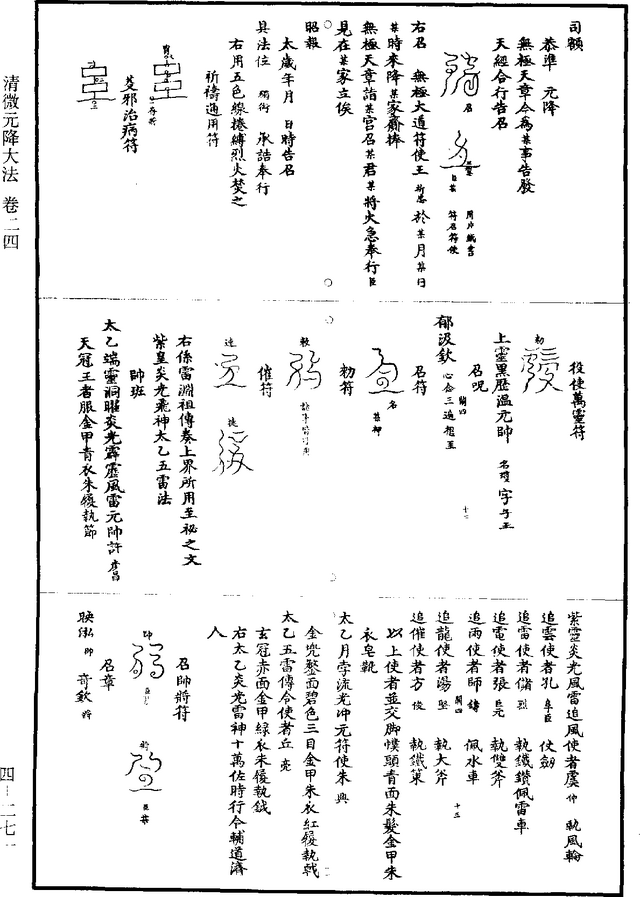 清微元降大法 卷二四
司額
恭準 元降
無極天章今為某事告發
天經合行告召
召
用片紙書
符召符使
右召 無極大道符使王 於某月某日
某時來降某家齋捧
無極天章詣某宮召某君某將火急奉行臣
見在某家立俟
昭報
太歲年月 日時告名
具法位 承誥奉行
右用五色線捲縛烈火焚之
祈禱通用符
芟邪治病符
役使萬靈符
勑
上靈黑歷溫元帥 名瓊字子玉
召呪
郁汲欽 心念三遍
召符
名
勑符
催符
速
捷
右係雷淵祖傳奏上界所用至祕之文
紫皇炎光飛神太乙五雷法
帥班
太乙端靈洞曜炎光霹靂風雷元帥許
天冠王者服金甲青衣朱履執節
紫靈炎光風雷追風使者虞仲 執風輪
追雲使者孔 仗劒
追雷使者儲烈 執鐵鑽佩雷車
追電使者張 執雙斧
追雨使者師鑄 佩水車
追龍使者湯堅 執大斧
追催使者方俊 執鐵箠
以上使者並交脚幞頭青面朱髮金甲朱
衣皂靴
太乙月孛流光冲元符使朱興
金兜鍪面碧色三目金甲朱衣紅履執戟
太乙五雷傳令使者丘亮
玄冠赤面金甲綠衣朱履執鉞
右太乙炎光雷神十萬佐時行令輔道濟
人
召帥將符
召章
四—二七一